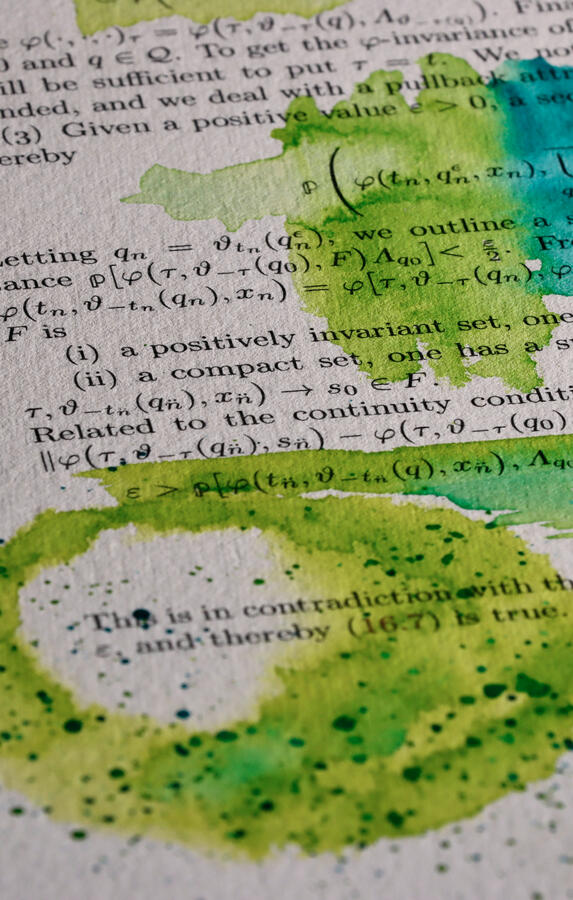 φ(·, ·, ·)τ = φ(τ, ϑ₋τ(q), Λϑ₋τ(q)). Fina
) and q ∈ Q. To get the φ-invariance of
ill be sufficient to put τ = t. We not
nded, and we deal with a pullback attr
(3) Given a positive value ε > 0, a sec
ereby
ℙ ( φ(tₙ, qₙ^ε, xₙ),
Letting qₙ = ϑtₙ(qₙ^ε), we outline a s
ance ℙ[φ(τ, ϑ₋τ(q₀), F) Λq₀] < ε/2. Fr
φ(tₙ, ϑ₋tₙ(qₙ), xₙ) = φ[τ, ϑ₋τ(qₙ), φ
F is
(i) a positively invariant set, one
(ii) a compact set, one has a s
τ, ϑ₋tn̈(qn̈), xn̈) → s₀ ∈ F.
Related to the continuity conditi
||φ(τ, ϑ₋τ(qn̈), sn̈) − φ(τ, ϑ₋τ(q₀)
ε > ℙ[φ(tn̈, ϑ₋tn̈(q), xn̈), Λq₀
This is in contradiction with th
ε, and thereby (16.7) is true.